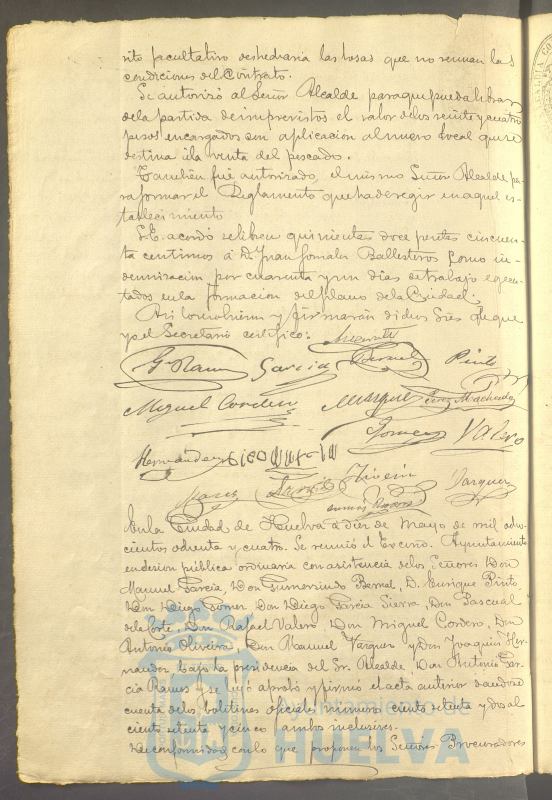 rito facultativo desharia las losas que no reunan las
condiciones del Contrato.
Se autorizó al Señor Alcalde para que pueda librar
de la partida de imprevistos el valor de los veinte y cuatro
pesos encargados con aplicacion al nuevo local que se
destina á la venta del pescado.
Tambien fué autorizado, el mismo Señor Alcalde pa-
ra formar el Reglamento que ha de regir en aquel es-
tablecimiento
S.E. acordó se libren quinientas doce pesetas cincuen-
ta centimos á D. Juan Gonzalez Ballesteros como in-
demnizacion por cuarenta y un dias de trabajo ejecu-
tados en la formacion del plano de la Ciudad.
Asi lo resolvieron y firmarán dichos Sres de que
yo el Secretario certifico:
G. Ramos Garcia Bernal Pinto
Miguel Cordero Vazquez Perez Machado
Gomez Valero
Hernandez
Garcia Oliveira Vazquez
En la Ciudad de Huelva á diez de Mayo de mil ocho-
cientos ochenta y cuatro. Se reunió el Excmo. Ayuntamiento
en sesion pública ordinaria con asistencia de los Señores Don
Manuel Garcia, Don Gumersindo Bernal, D. Enrique Pinto,
Don Diego Gomez, Don Diego Garcia Sierra, Don Pascual
de la Corte, Don Rafael Valero, Don Miguel Cordero, Don
Antonio Oliveira, Don Manuel Vazquez y Don Joaquin Her-
nandez bajo la presidencia del Sr. Alcalde Don Antonio Gar-
cia Ramos y se leyó aprobó y firmó el acta anterior dandose
cuenta de los boletines oficiales números ciento setenta y dos al
ciento setenta y cinco ambos inclusives.
De conformidad con lo que proponen los Señores Procuradores
Ayuntamiento de
HUELVA